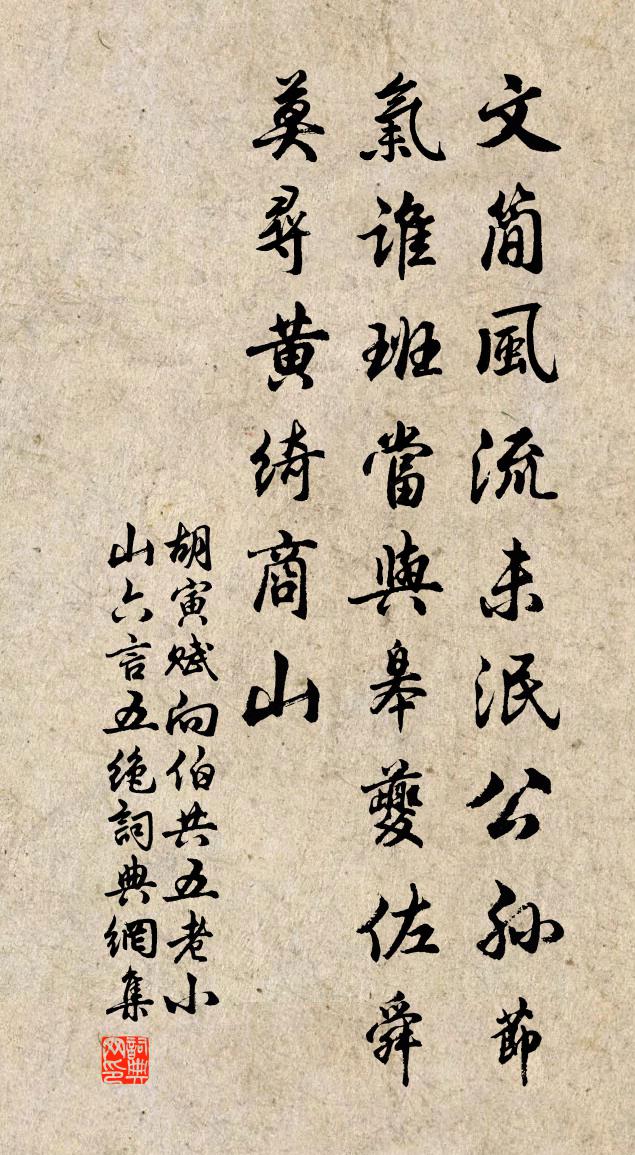 文简風流未泯公孙節
氣誰班當與皋夔佐舜
莫尋黄绮商山
胡寅赋向伯共五老小
山六言五绝詞典網集
詞典网印